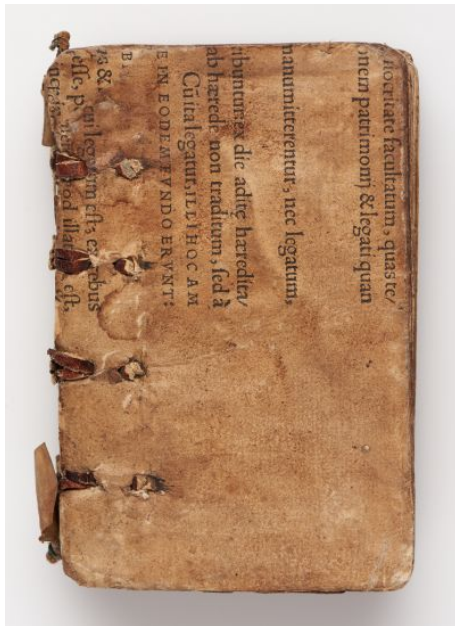 facultatum, quas te/
onem patrimonij & legati quan
manumitterentur, nec legatum,
ribuntur: ex die aditę hæredita/
ab hærede non traditum, sed à
Cū ita legatur, ILLI HOC AM
E IN EODEM FVNDO ERVNT:
BA
& cui legatum est, ex rebus
esse, quod est,